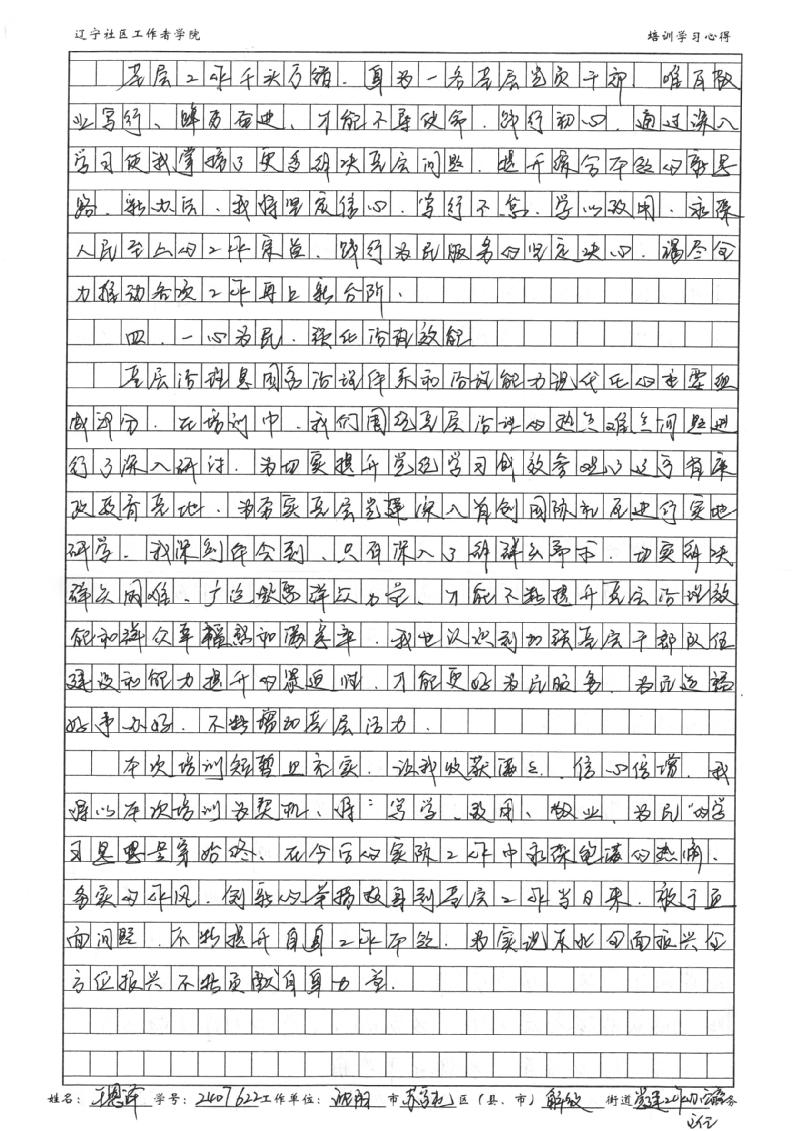 辽宁社区工作者学院 培训学习心得
基层工作千头万绪,身为一名基层党员干部,唯有敬
业笃行、踔厉奋进,才能不辱使命,践行初心,通过深入
学习使我掌握了更多解决基层问题,提升履会本领的新思
路、新办法,我将坚定信心,笃行不怠,学以致用,永葆
人民至上的工作宗旨,践行为民服务的坚定决心,竭尽全
力推动各次工作再上新台阶。
四、一心为民,强化治理效能
基层治理是国家治理体系和治理能力现代化的重要组
成部分,在培训中,我们围绕基层治理的热点难点问题进
行了深入研讨,为切实提升党纪学习成效参观了辽宁省廉
政教育基地,为夯实基层党建深入首创国际社区进行实地
研学。我深刻体会到,只有深入了解群众需求,切实解决
群众困难,广泛凝聚群众力量,才能不断提升基层治理效
能和群众幸福感和满意率,我也认识到加强基层干部队伍
建设和能力提升的紧迫性,才能更好为民服务,为民造福
好事办好,不断增加基层活力。
本次培训短暂且充实,让我收获满满,信心倍增,我
将以本次培训为契机,将“笃学、致用、敬业、为民”的学
习思想贯穿始终,在今后的实际工作中永葆饱满的热情、
务实的作风、创新的举措投身到基层工作当日来,敢于直
面问题,不断提升自身工作本领,为实现东北全面振兴全
方位振兴不断贡献自身力量。
姓名:王恩泽 学号:2407622 工作单位:沈阳 市 苏家屯 区(县、市) 解放 街道 党建工作办公室